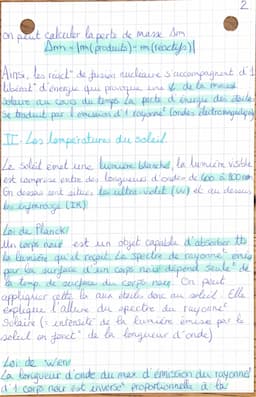 2
on peut calculer la perte de masse Δm
Δm = |m(produits) - m(reactifs)|
Ainsi, les react° de fusion nucléaire s'accompagnent d'1
liberat° d'énergie qui provoque une ↓ de la masse
solaire au cours du temps. La perte d'énergie des étoiles
se traduit par l'emission d'1 rayonnt (ondes electromagnétiques)
II - Les températures du soleil.
Le soleil emet une lumière blanche, la lumière visible
est comprise entre des longueurs d'ondes de 400 à 800 nm
En dessous sont situés les ultra-violet (UV) et au dessus
les infrarouge (IR)
Loi de Planck:
Un corps noir est un objet capable d'absorber tte
la lumière qu'il reçoit. Le spectre de rayonnt émis
par la surface d'un corps noir dépend seulet de
la temp. de surface du corps noir. On peut
appliquer cette loi aux étoiles donc au soleil. Elle
explique l'allure du spectre du rayonnt
Solaire (= intensité de la lumière émise par le
soleil en fonct° de la longueur d'onde)
Loi de Wien
La longueur d'onde du max d'émission du rayonnt
d'1 corps noir est inverset proportionnelle à la